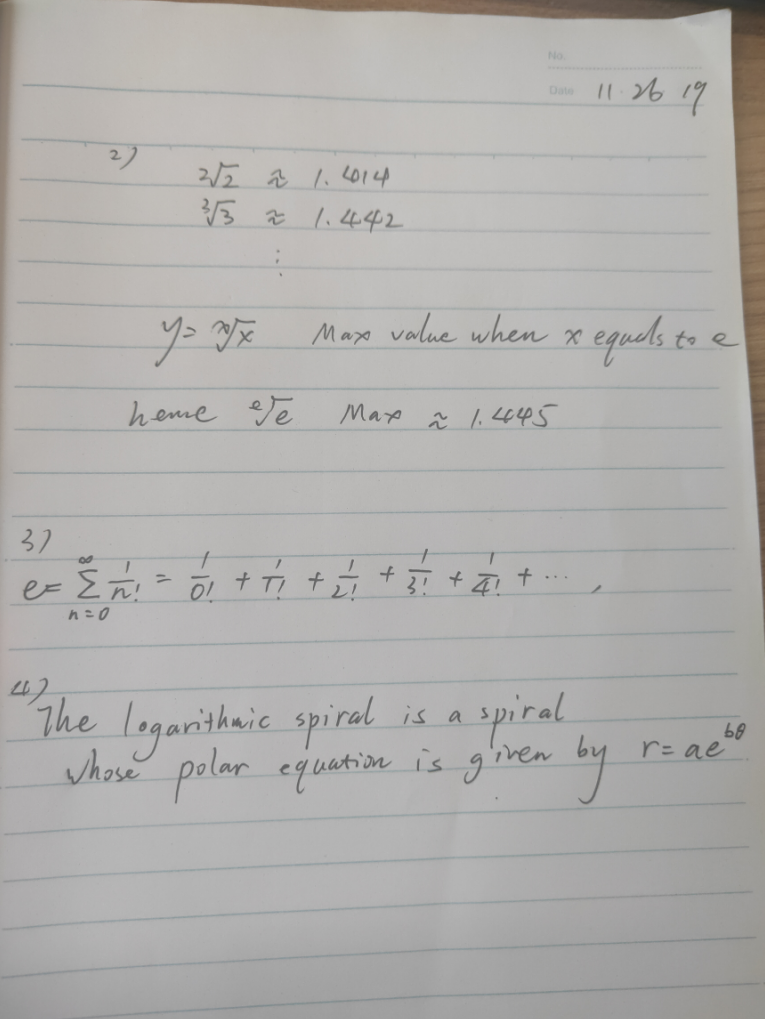 No.
Date 11·26 19
2)
²√2 ≈ 1.414
³√3 ≈ 1.442
⋮
y = ˣ√x Max value when x equals to e
hence ᵉ√e Max ≈ 1.445
3)
e = ∑_{n=0}^{∞} 1/n! = 1/0! + 1/1! + 1/2! + 1/3! + 1/4! + ··· ,
4)
The logarithmic spiral is a spiral
whose polar equation is given by r = ae^{bθ}